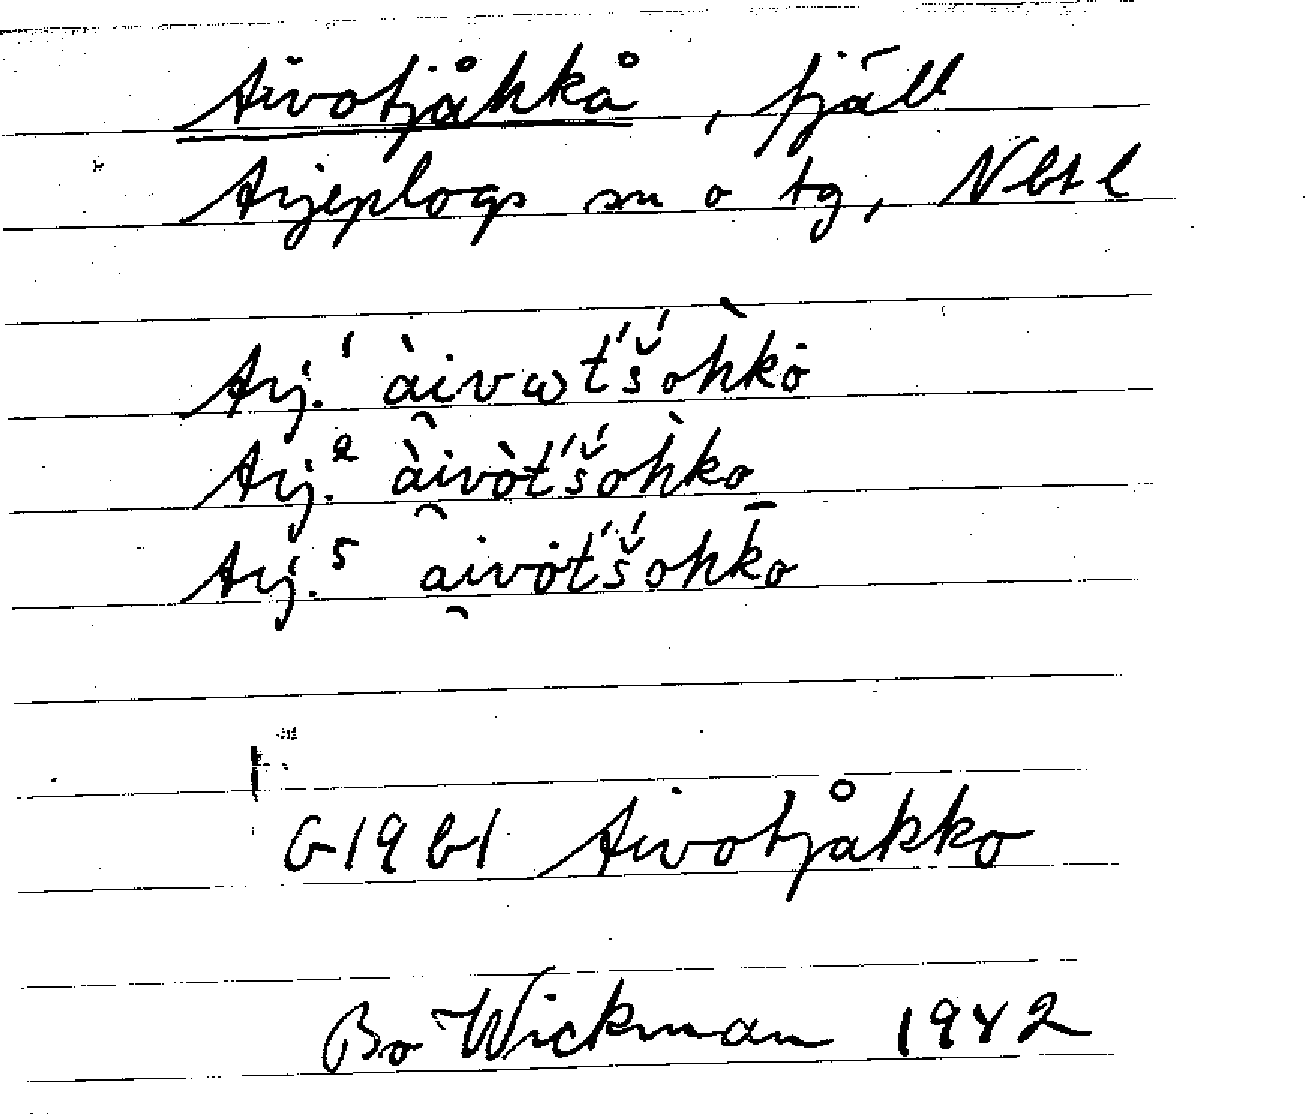 Aivotjåkkå, fjäll
Arjeplogs sn o tg, Nbtl
Arj.¹ ài̯vωt́'š́oh̀kȯ
Arj.² ài̯vòt́'š́oh̀ko̱
Arj.⁵ ai̯vȯt́'š́ohk̄o
G 19 b1 Aivotjåkko
Bo Wickman 1942